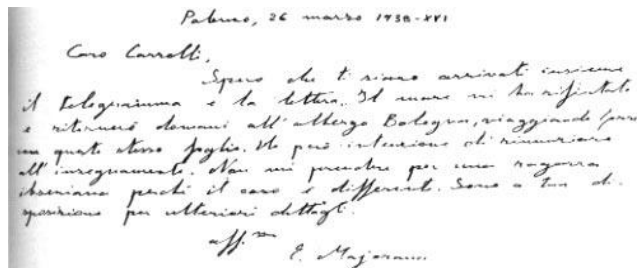 Palermo, 26 marzo 1938-XVI
Caro Carrelli,
Spero che ti siano arrivati insieme
il telegramma e la lettera. Il mare mi ha rifiutato
e ritornerò domani all'albergo Bologna, viaggiando forse
con questo stesso foglio. Ho però intenzione di rinunziare
all'insegnamento. Non mi prendere per una ragazza
ibseniana perché il caso è differente. Sono a tua di-
sposizione per ulteriori dettagli.
aff.mo
E. Majorana